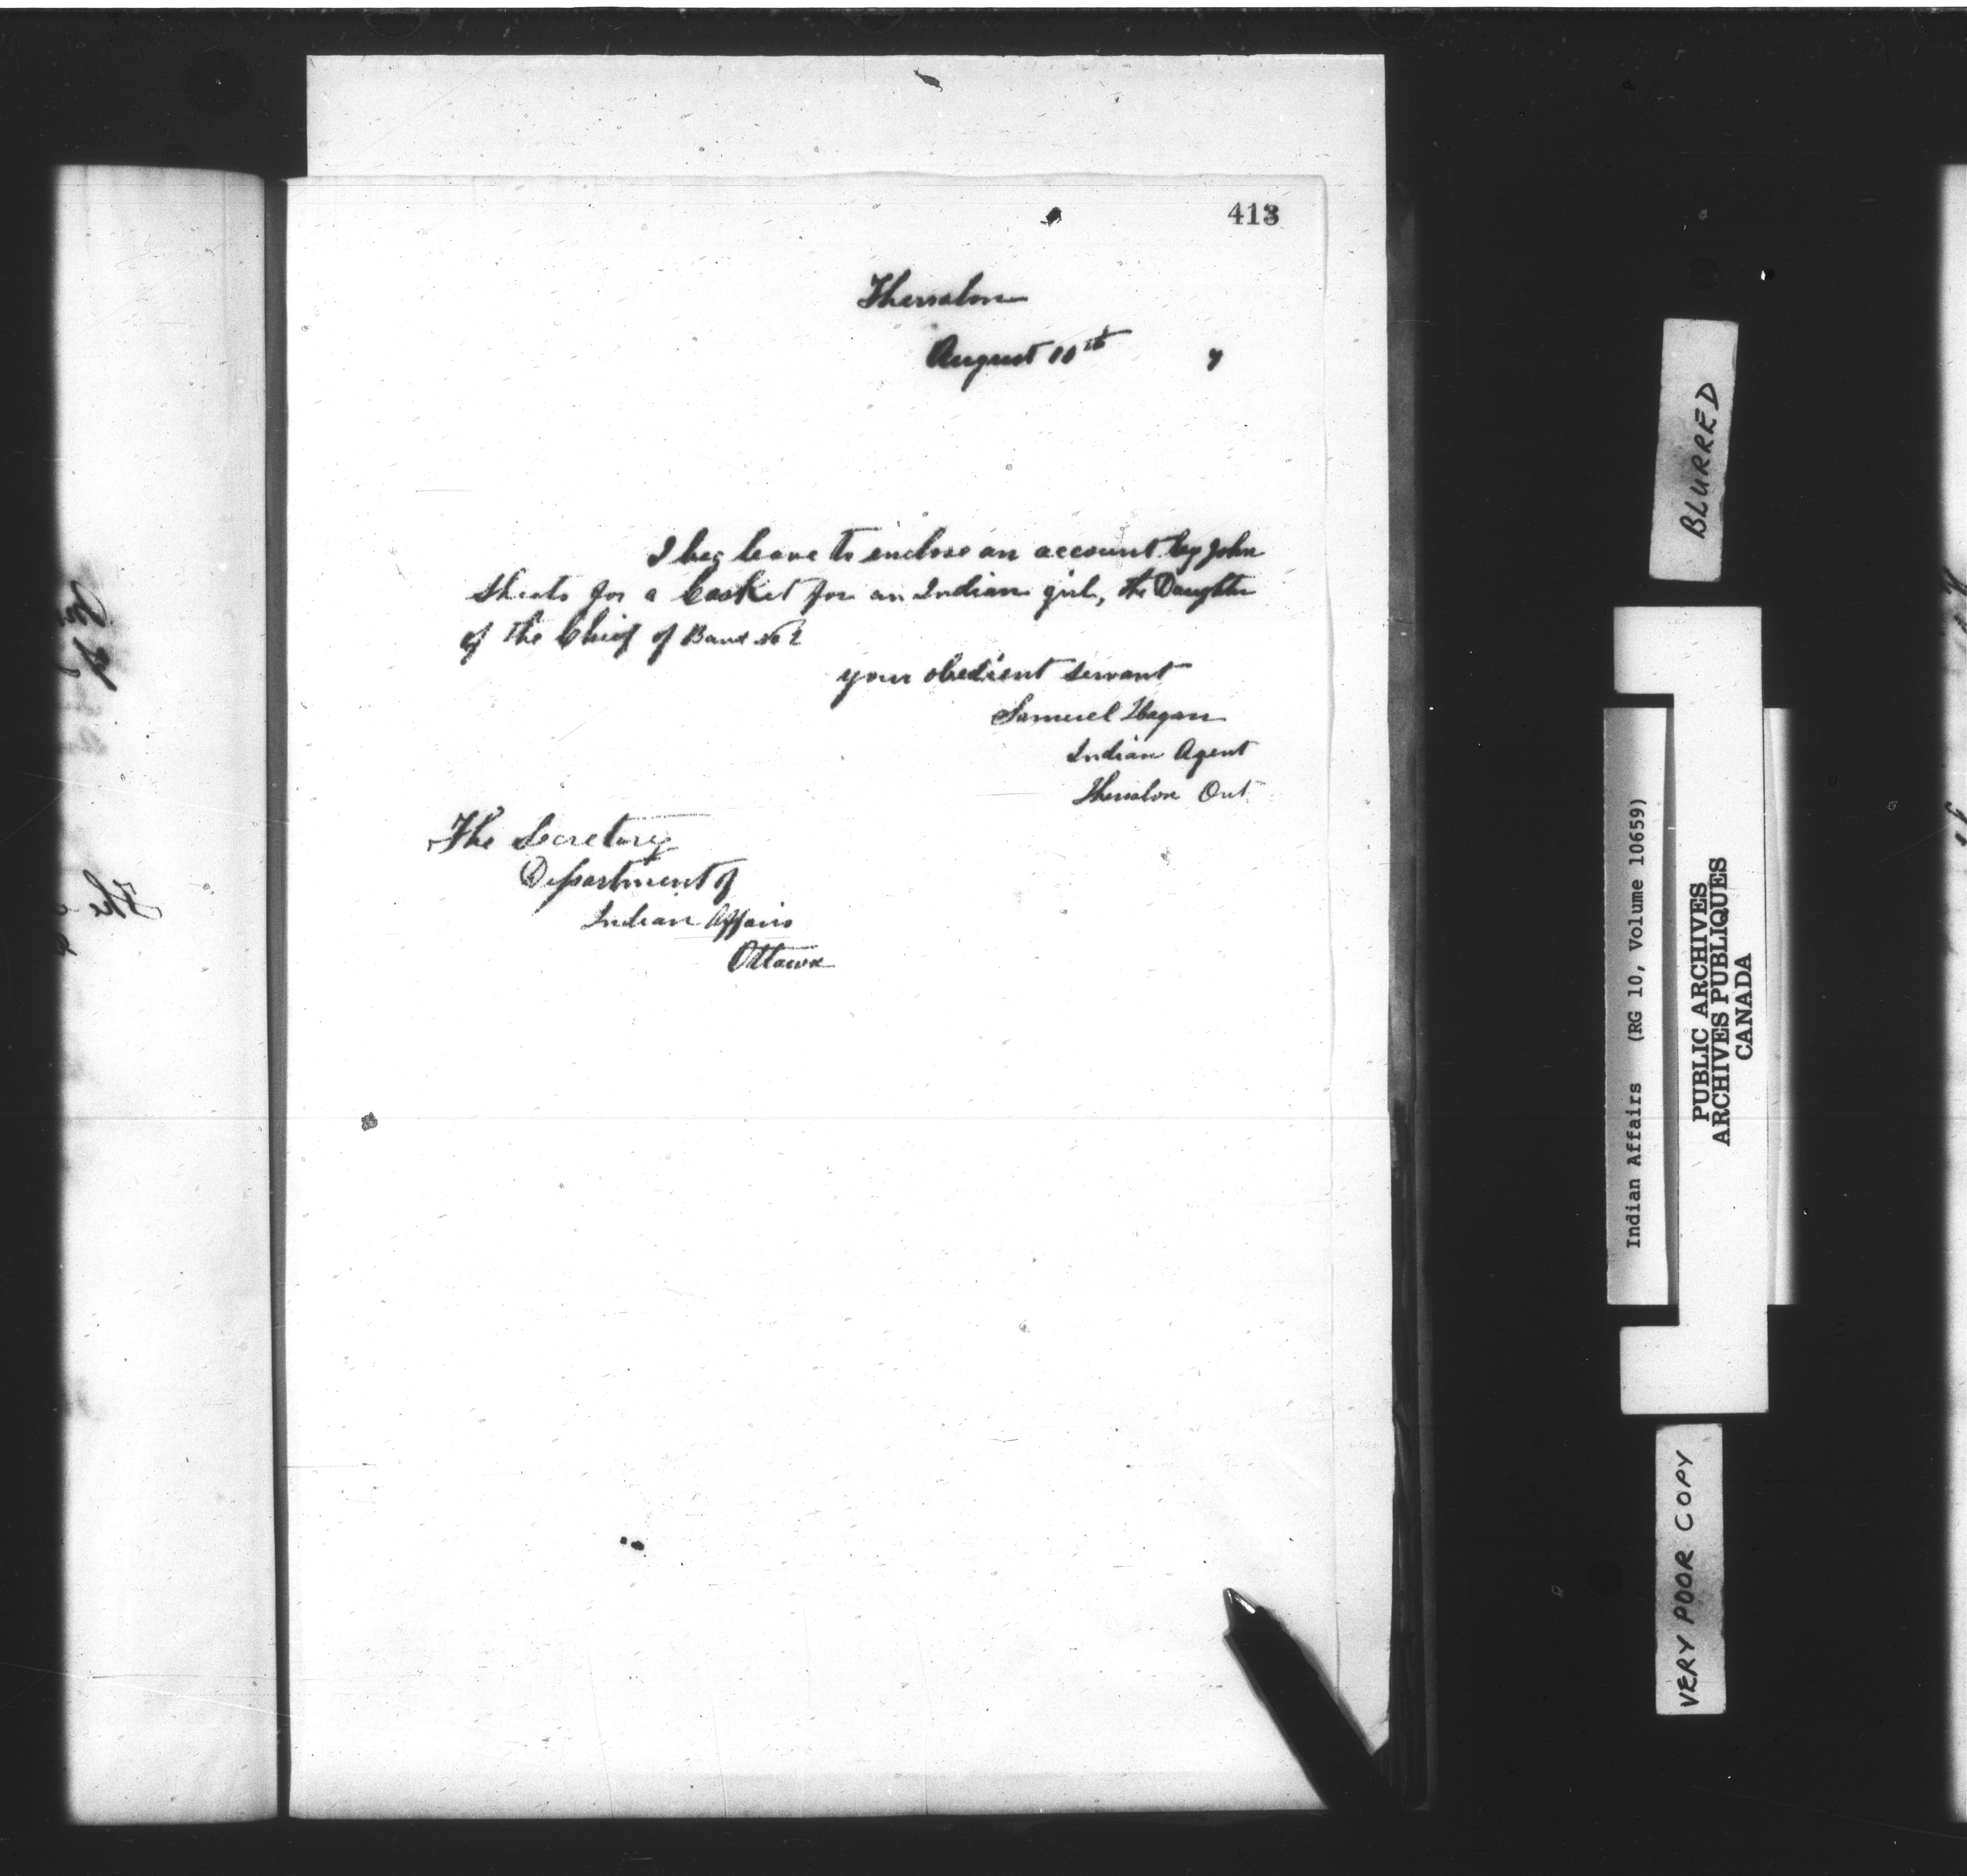 413
Thessalon
August 10th 7
I beg leave to enclose an account by John
Sheats for a Casket for an Indian girl, the Daughter
of the Chief of Band No 2
your obedient servant
Samuel Hagan
Indian Agent
Thessalon Ont
The Secretary
Department of
Indian Affairs
Ottawa
The
BLURRED
Indian Affairs (RG 10, Volume 10659)
PUBLIC ARCHIVES
ARCHIVES PUBLIQUES
CANADA
VERY POOR COPY